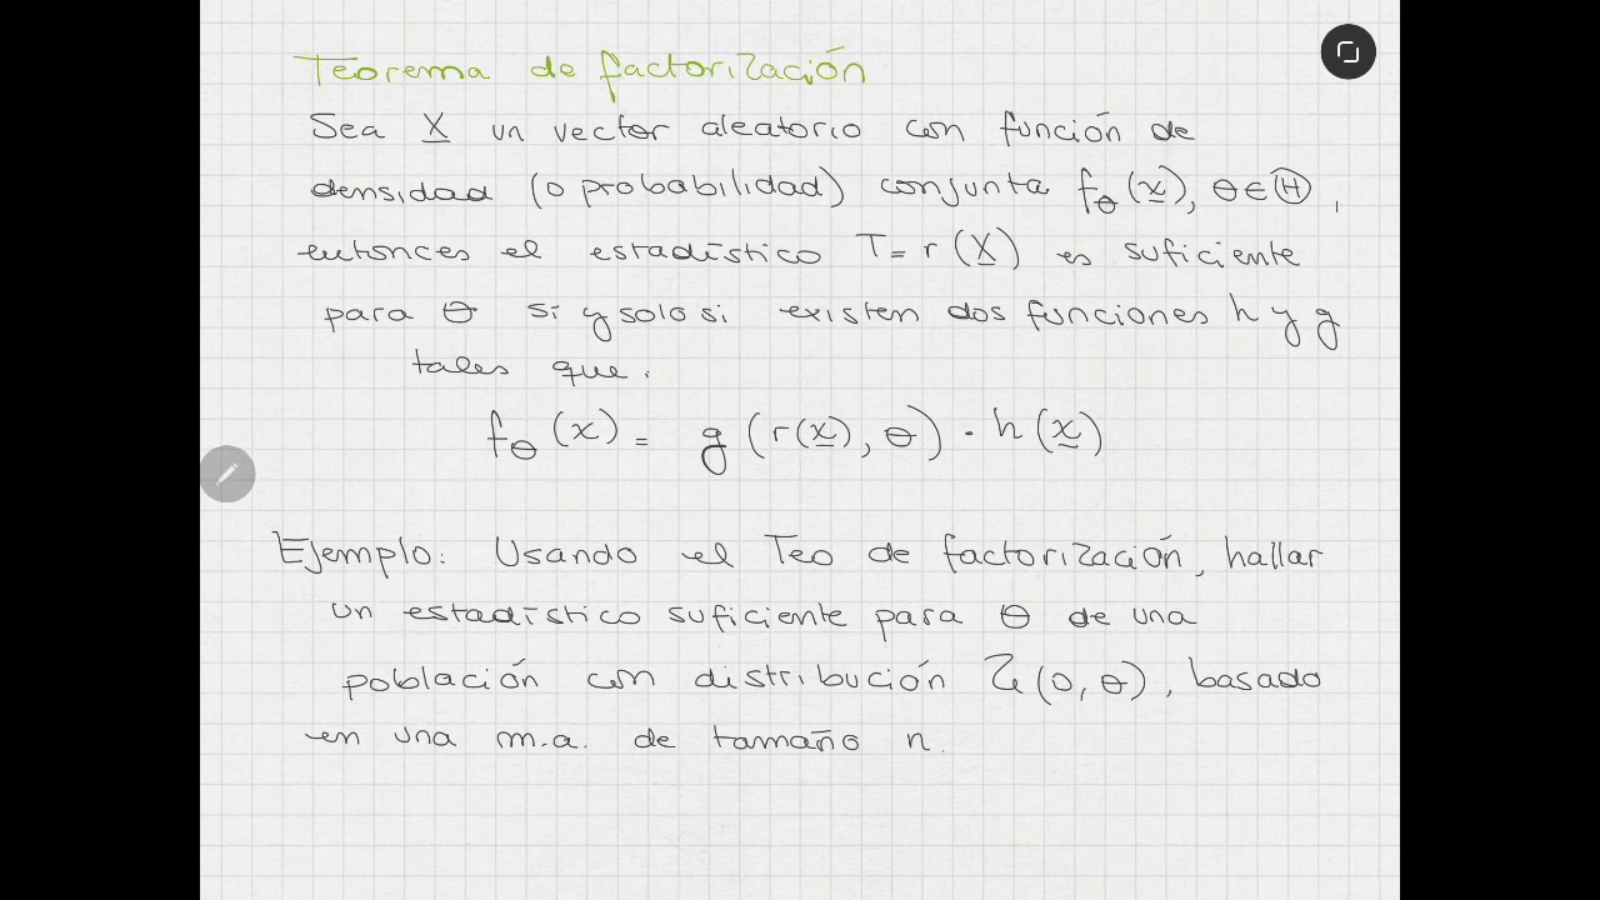 Teorema de factorización
Sea X un vector aleatorio con función de
densidad (o probabilidad) conjunta fθ(x), θ∈Θ,
entonces el estadístico T=r(X) es suficiente
para θ si y solo si existen dos funciones h y g
tales que.
fθ(x) = g(r(x), θ) · h(x)
Ejemplo: Usando el Teo de factorización, hallar
un estadístico suficiente para θ de una
población con distribución U(0, θ), basado
en una m.a. de tamaño n.